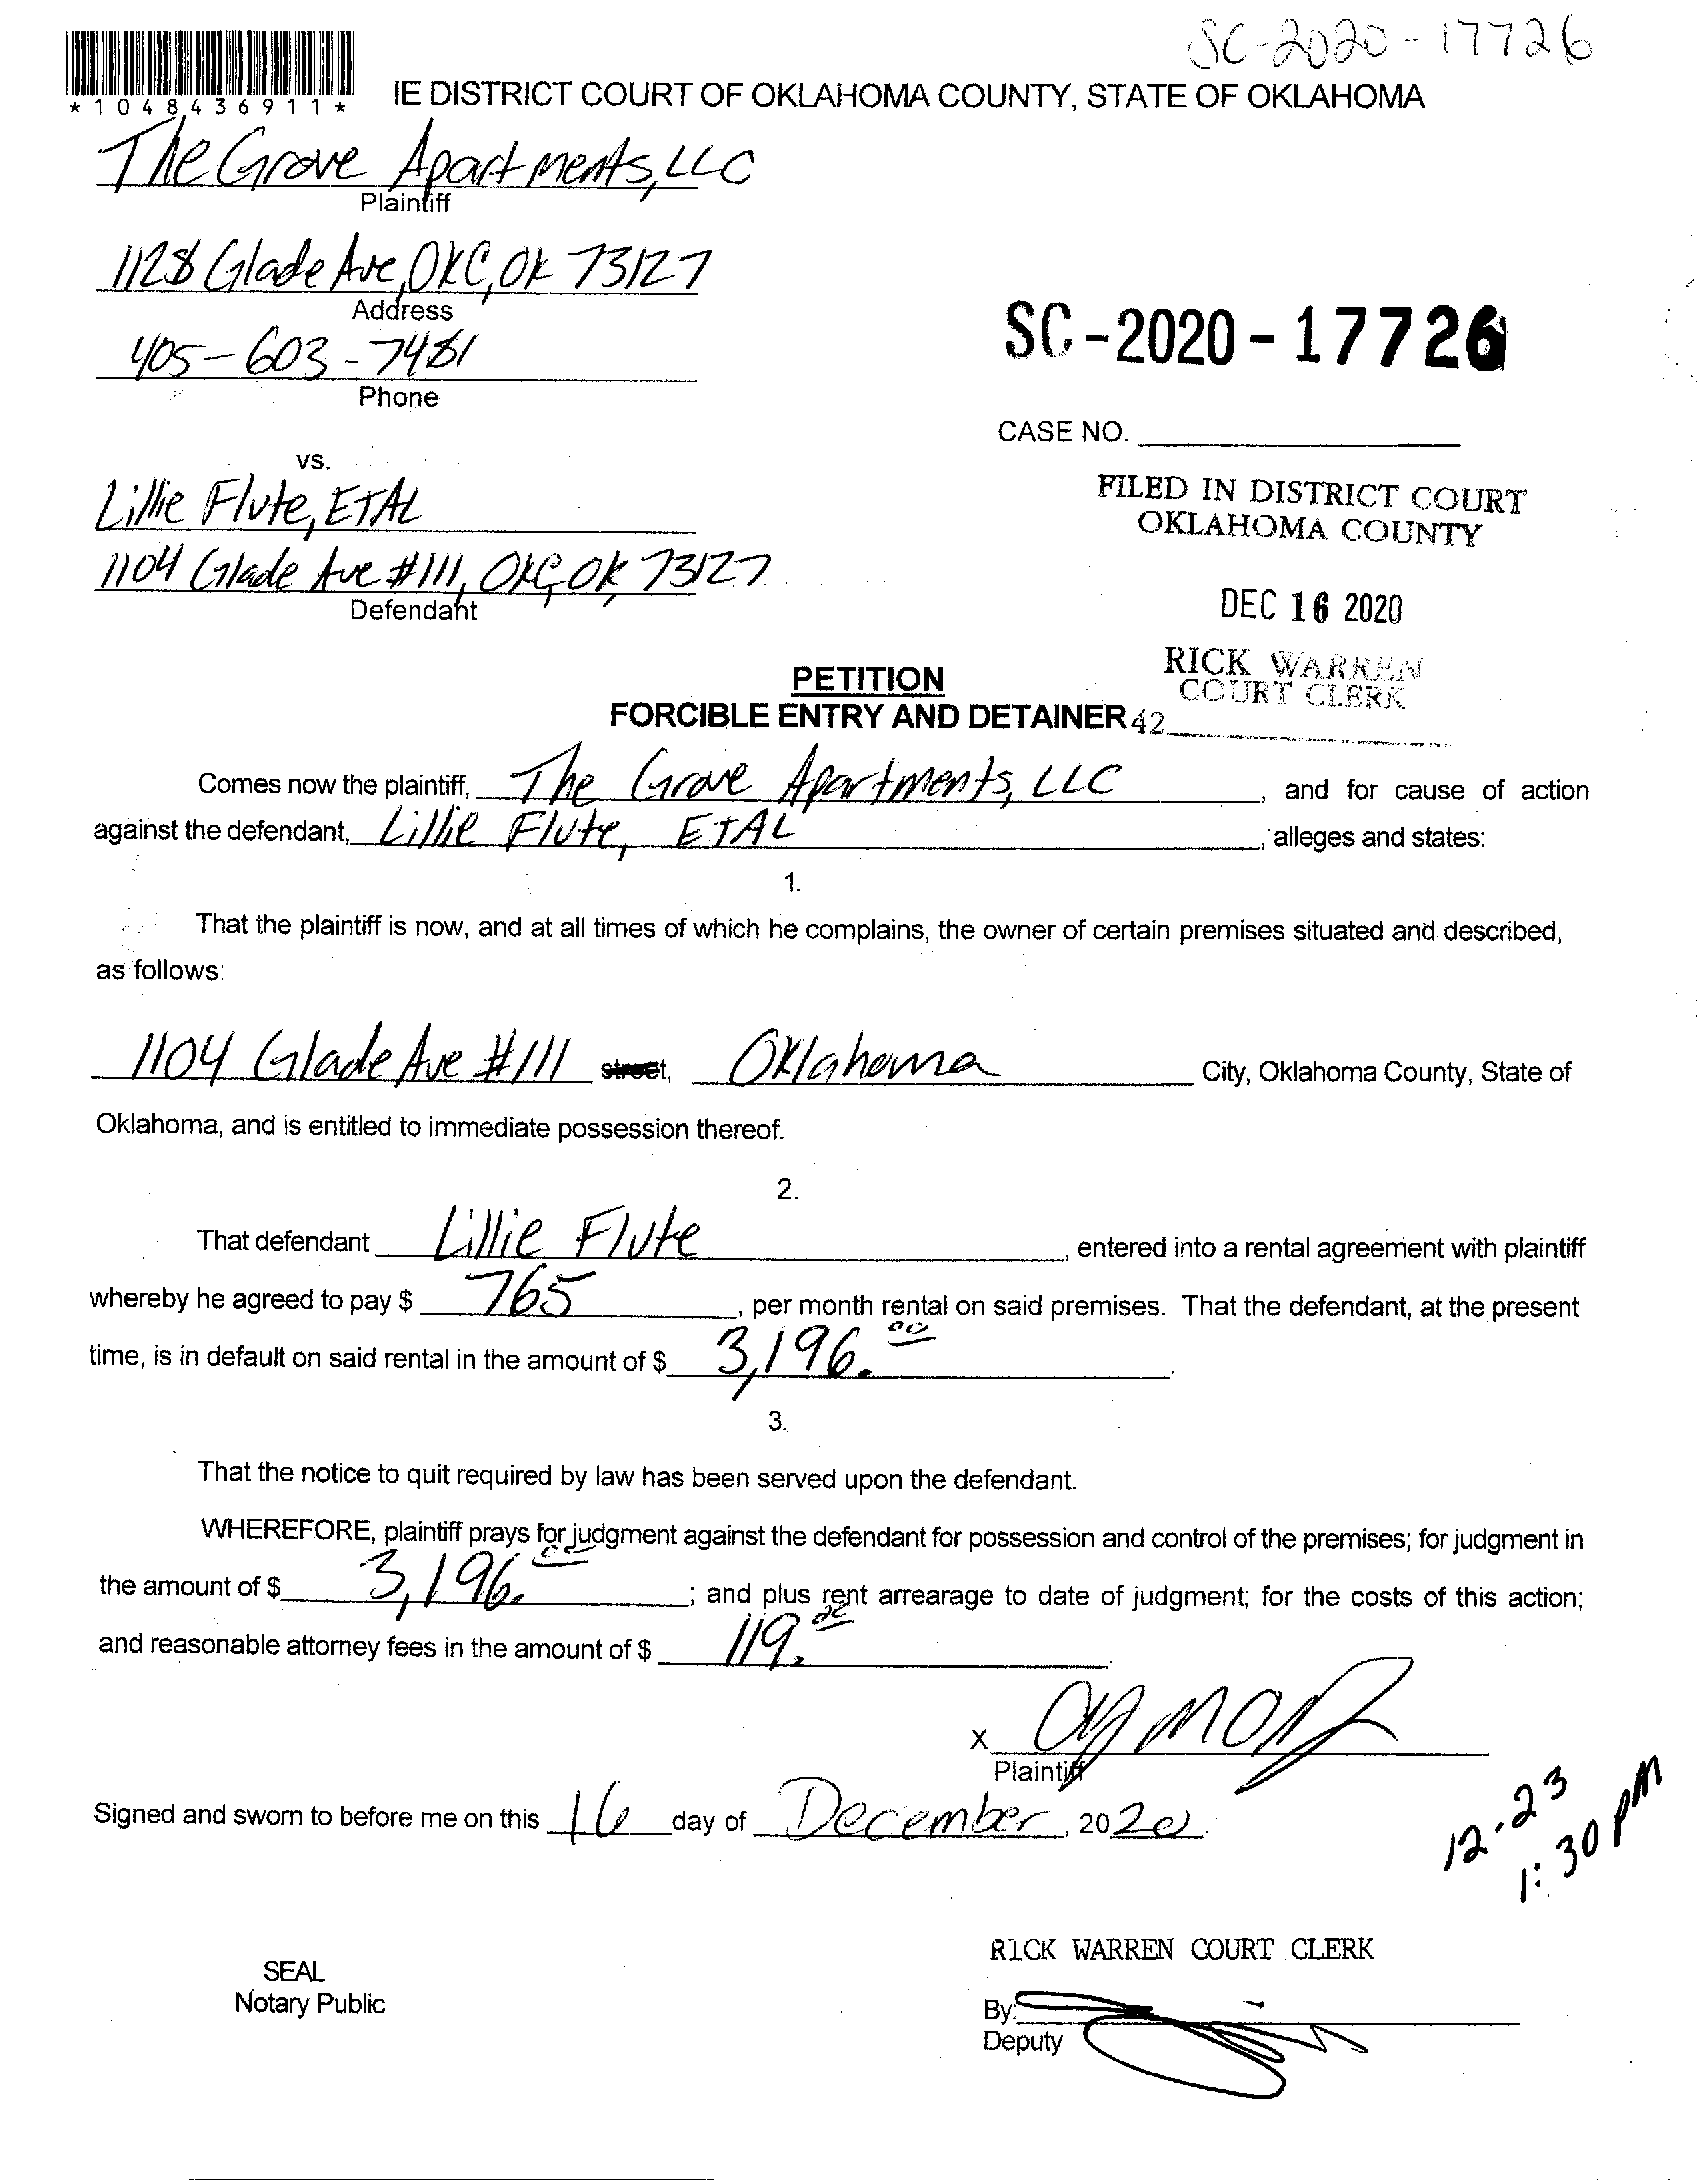 SC-2020-17726
*1048436911*
IE DISTRICT COURT OF OKLAHOMA COUNTY, STATE OF OKLAHOMA
The Grove Apartments, LLC
Plaintiff
1128 Glade Ave, OKC, OK 73127
Address
405-603-7481
Phone
SC-2020-17726
CASE NO.
vs.
Lillie Flute, ETAL
FILED IN DISTRICT COURT
OKLAHOMA COUNTY
1104 Glade Ave #111, OKC, OK, 73127
Defendant
DEC 16 2020
RICK WARREN
COURT CLERK
PETITION
FORCIBLE ENTRY AND DETAINER
42
Comes now the plaintiff, The Grove Apartments, LLC, and for cause of action
against the defendant, Lillie Flute, ETAL, alleges and states:
1.
That the plaintiff is now, and at all times of which he complains, the owner of certain premises situated and described,
as follows:
1104 Glade Ave #111 street, Oklahoma City, Oklahoma County, State of
Oklahoma, and is entitled to immediate possession thereof.
2.
That defendant Lillie Flute, entered into a rental agreement with plaintiff
whereby he agreed to pay $ 765, per month rental on said premises. That the defendant, at the present
time, is in default on said rental in the amount of $ 3,196.00.
3.
That the notice to quit required by law has been served upon the defendant.
WHEREFORE, plaintiff prays for judgment against the defendant for possession and control of the premises; for judgment in
the amount of $ 3,196.00; and plus rent arrearage to date of judgment; for the costs of this action;
and reasonable attorney fees in the amount of $ 119.00.
X
Plaintiff
Signed and sworn to before me on this 16 day of December, 2020.
12-23
1:30 PM
RICK WARREN COURT CLERK
SEAL
Notary Public
By:
Deputy